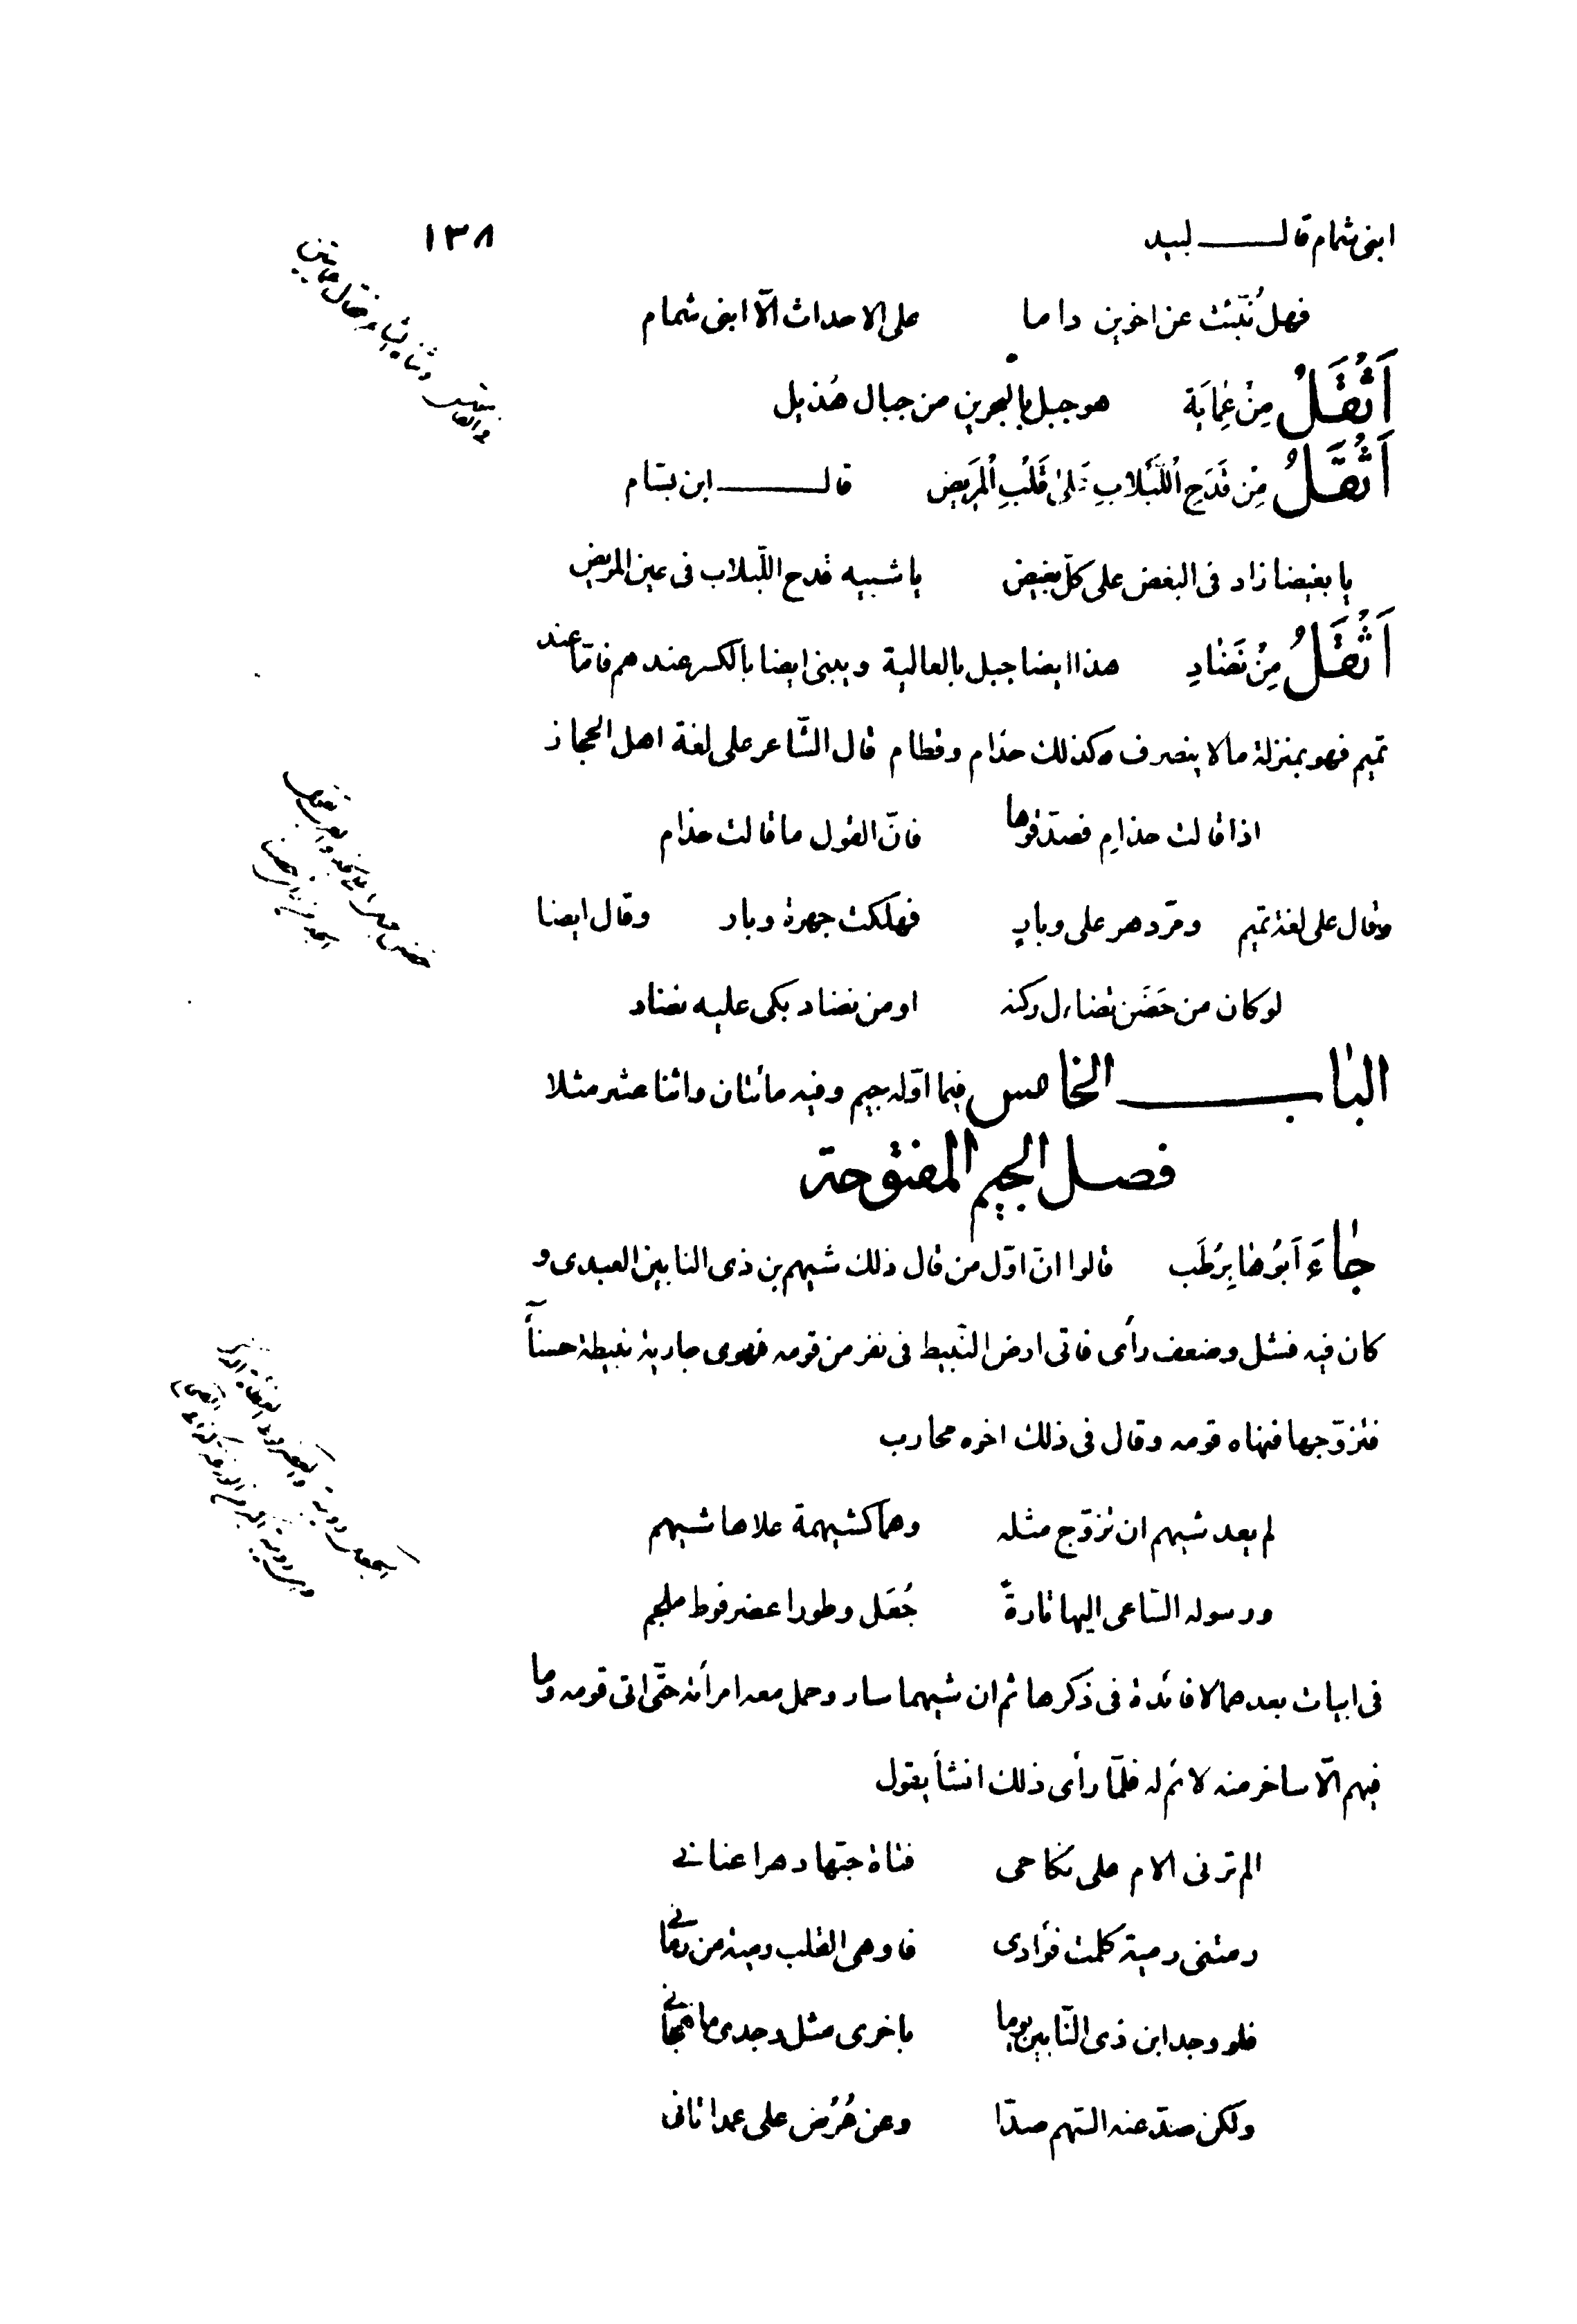 ابنى شمام قال لبيد
١٣٨
فهل نُبّئت عن اخوين داما على الاحداث الّا ابنى شمام
اَثْقَلُ مِنْ عَمايَة هو جبل بالبحرين من جبال هُذيل
اَثْقَلُ مِنْ قَدَحِ اللَّبْلابِ عَلىٰ قَلْبِ المَريضِ قال ابن بسّام
يا بغيضا زاد فى البغض على كلّ بغيض يا شبيه قدح اللّبلاب فى عين المريض
اَثْقَلُ مِنْ نَضٰادِ هذا ايضا جبل بالعالية ويبنى ايضا بالكسر عندهم فامّا عند
تميم فهو بمنزلة ما لا ينصرف وكذلك حذام وقطام قال الشّاعر على لغة اهل الحجاز
اذا قالت حذامِ فصدّقوها فانّ القول ما قالت حذام
وقال على لغة تميم ومرّ دهر على وبارٍ فهلكت جهرة وبار وقال ايضا
لو كان من حَضَن تضاءل ركنه او من نضاد بكى عليه نضاد
الباب الخامس فيما اوّله جيم وفيه مائتان واثنا عشر مثلا
فصل الجيم المفتوحة
جٰاءَ اَبُوهٰا بِرُطَب قالوا انّ اوّل من قال ذلك شيهم بن ذى النابين العبدى و
كان فيه فشل وضعف رأى فاتى ارض النّبيط فى نفر من قومه فهوى جارية نبيطة حسناً
فتزوّجها فنهاه قومه وقال فى ذلك اخوه محارب
لم يعد شيهم ان تزوّج مثله وهما كشيهمة علاها شيهم
ورسوله السّاعى اليها تارةً جُعَل وطورا عضرفوط ملجم
فى ابيات بعدهما لا فائدة فى ذكرها ثم ان شيهما سار وحمل معه امرأته حتّى اتى قومه وما
فيهم الّا ساخر منه لائم له فلمّا رأى ذلك انشأ يقول
الم ترنى الام على نكاحى فتاة حبّها دهرا عنانى
رمتنى رمية كلمت فؤادى فاوهى القلب رمية من رمانى
فلو وجد ابن ذى النّابين يوما باخرى مثل وجدى ما هجانى
ولكن صدّ عنه السّهم صدّا وعن عُرُض على عمد اتانى